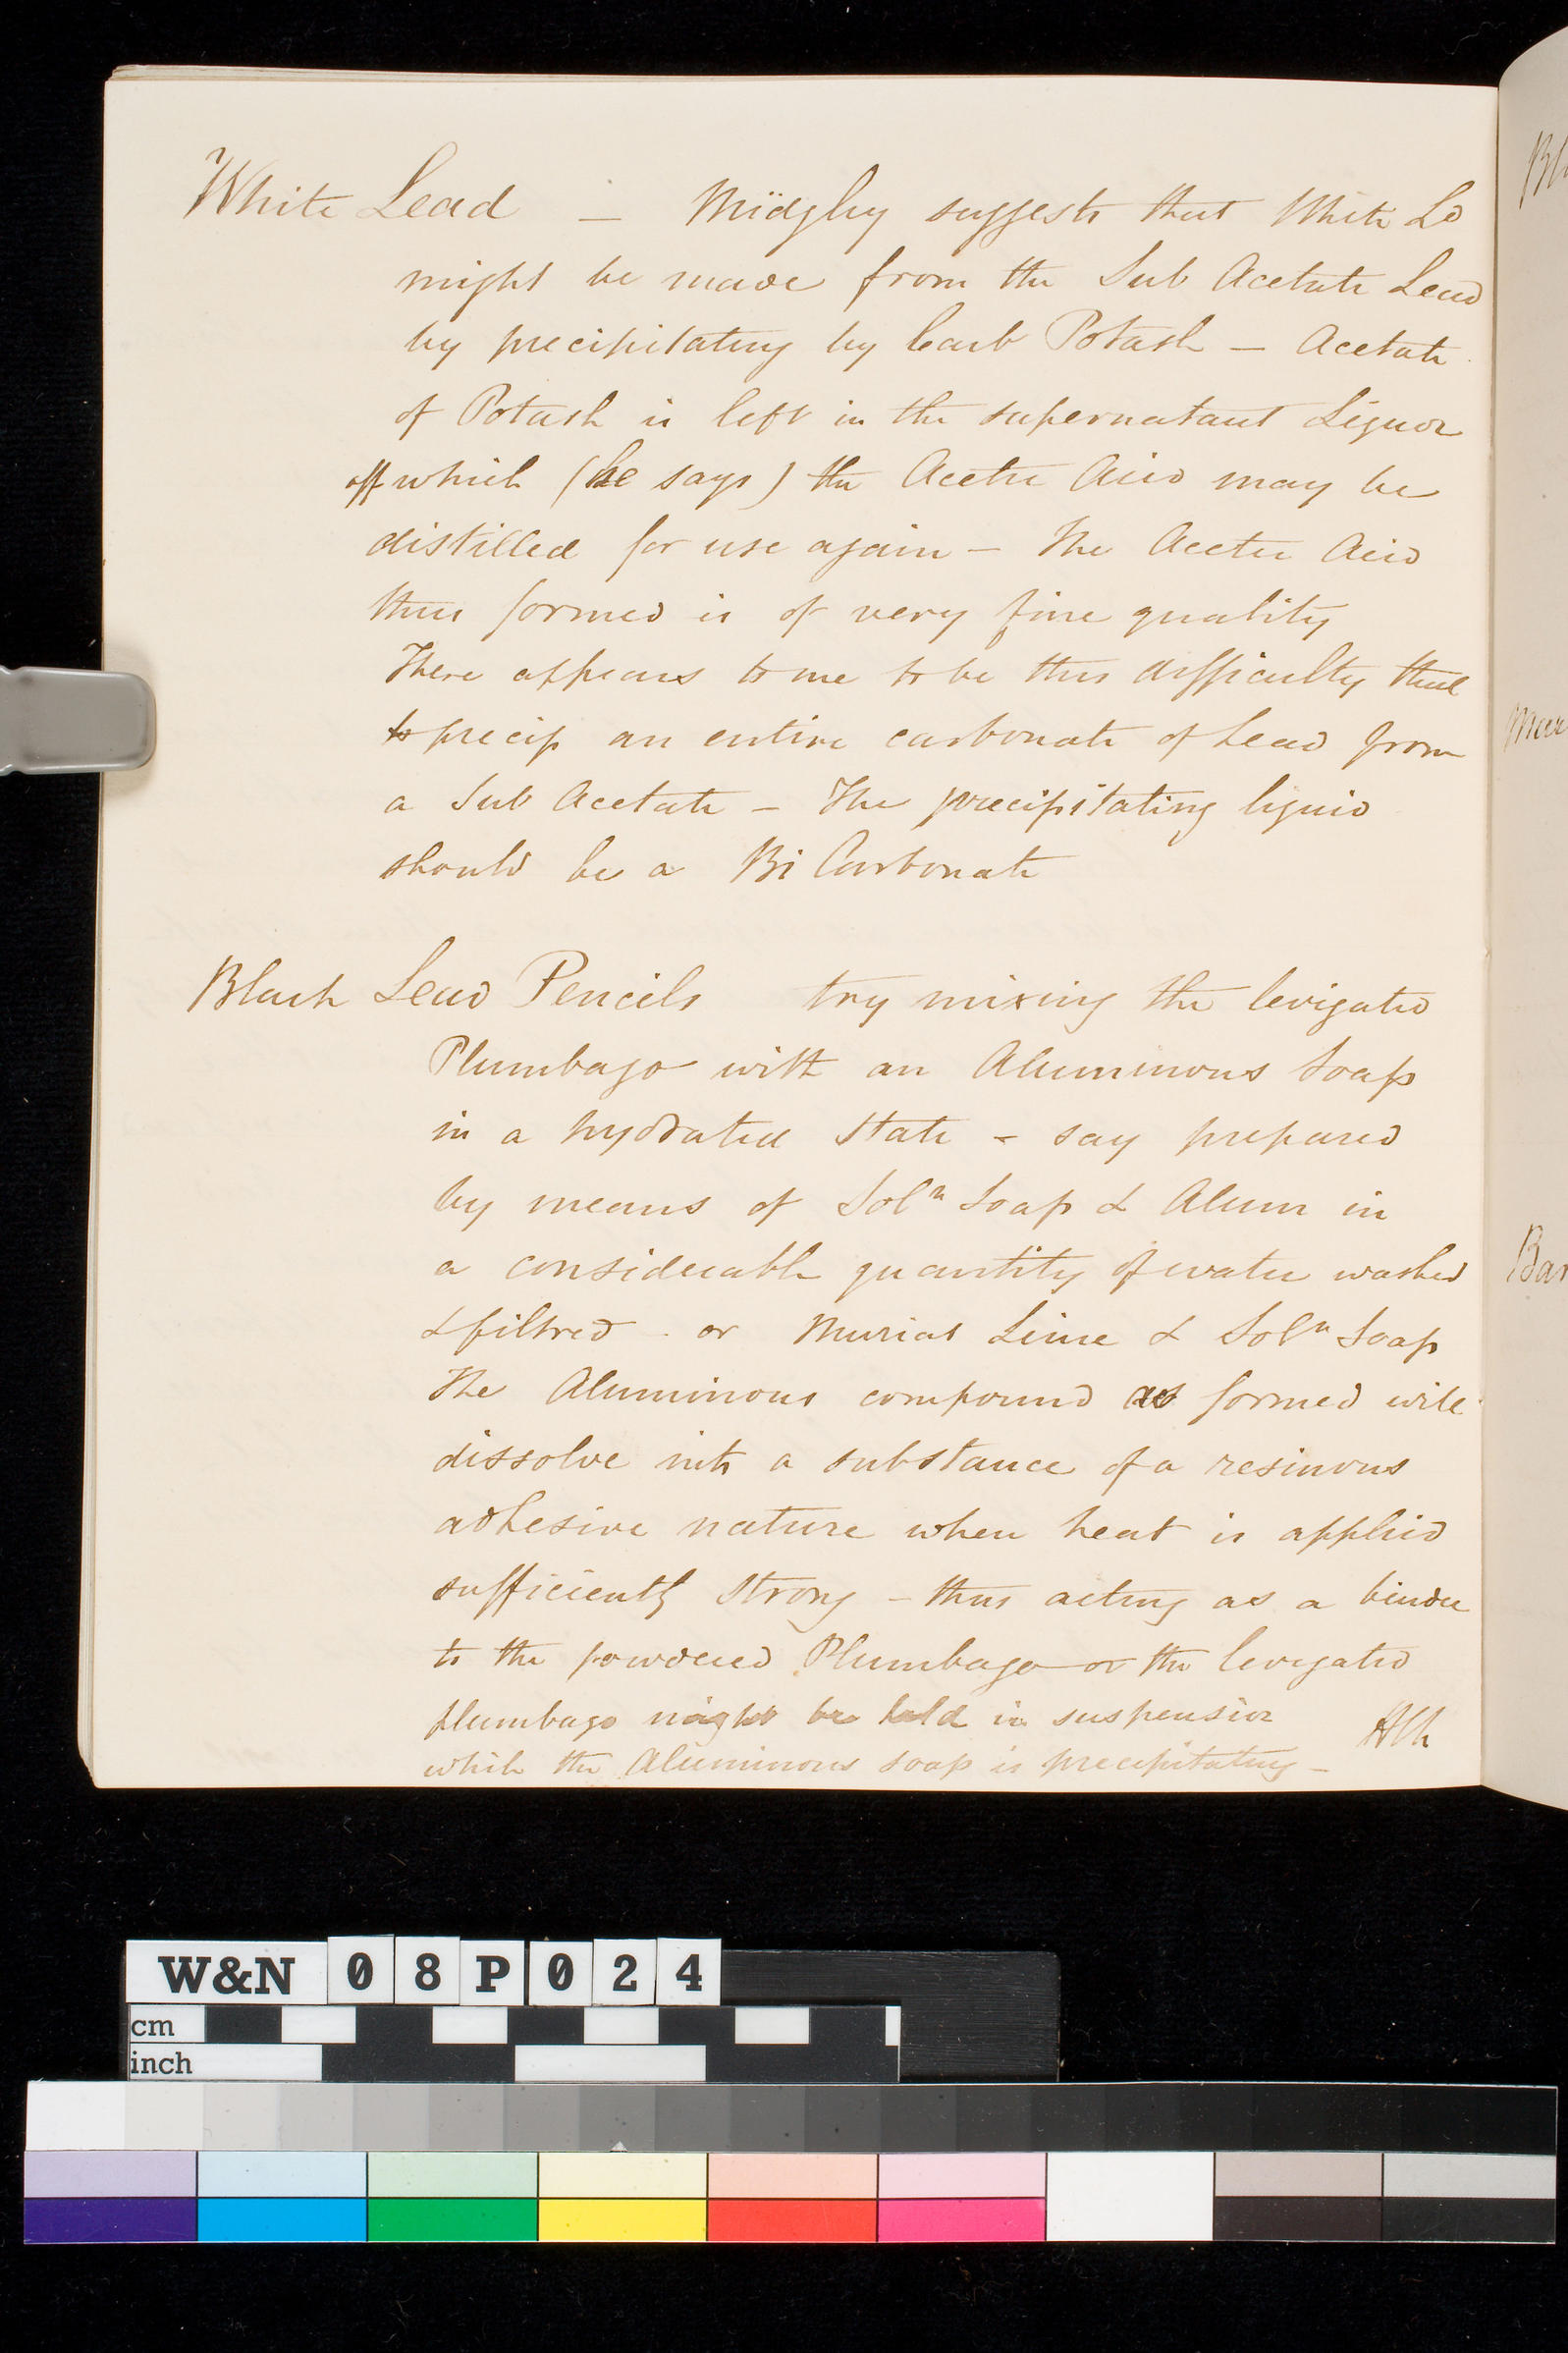 White Lead — Midgley suggests that White Ld
might be made from the Sub Acetate Lead
by precipitating by Carb Potash — Acetate
of Potash is left in the supernatant Liquor
off which (he says) the Acetic Acid may be
distilled for use again — The Acetic Acid
thus formed is of very fine quality
There appears to me to be this difficulty that
to precip an entire carbonate of Lead from
a Sub Acetate — The precipitating liquid
should be a Bi Carbonate
Black Lead Pencils try mixing the levigated
Plumbago with an Aluminous Soap
in a hydrated state - say prepared
by means of Solⁿ Soap & Alum in
a considerable quantity of water washed
& filtred - or Muriat Lime & Solⁿ Soap
The Aluminous compound as formed will
dissolve into a substance of a resinous
adhesive nature when heat is applied
sufficiently strong - thus acting as a binder
to the powdered Plumbago - or the levigated
plumbago might be held in suspension
while the Aluminous soap is precipitating —
W&N 08P024
cm
inch
Bl
Bar